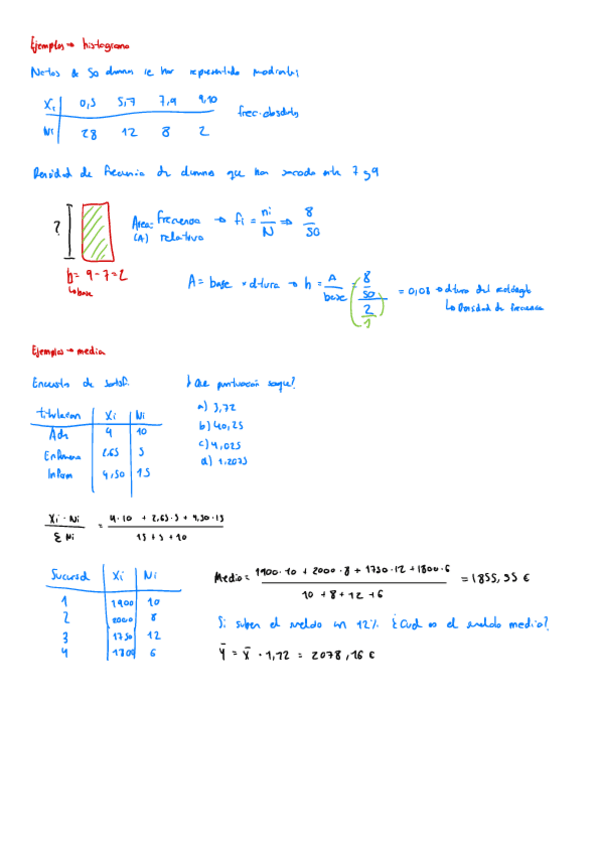 Ejemplos → histograma
Notas de 50 alumnos se han representado mediante:
Xi | 0,5 5,7 7,9 9,10
Ni | 28 12 8 2
frec. absoluta
Densidad de frecuencia de alumnos que han sacado entre 7 y 9
?
Area: frecuencia → fi = ni/N ⇒ 8/50
(A) relativa
b = 9 - 7 = 2
↳ base
A = base × altura → h = A/base = (8/50)/(2/1) = 0,08 → altura del rectángulo
↳ Densidad de frecuencia
Ejemplos → media
Encuesta de satisf. ¿Que puntuación saque?
Titulacion | Xi | Ni
Ade | 4 | 10
Enfermeria | 2,65 | 5
Inform | 4,50 | 15
a) 3,72
b) 40,25
c) 4,025
d) 1,2075
Xi · Ni / Σ Ni = 4·10 + 2,65·5 + 4,50·15 / 15 + 5 + 10
Sucursal | Xi | Ni
1 | 1900 | 10
2 | 2000 | 8
3 | 1750 | 12
4 | 1800 | 6
Media = 1900·10 + 2000·8 + 1750·12 + 1800·6 / 10 + 8 + 12 + 6 = 1855,55 €
Si suben el sueldo un 12% ¿Cual es el sueldo medio?
Ȳ = X̄ · 1,12 = 2078,16 €